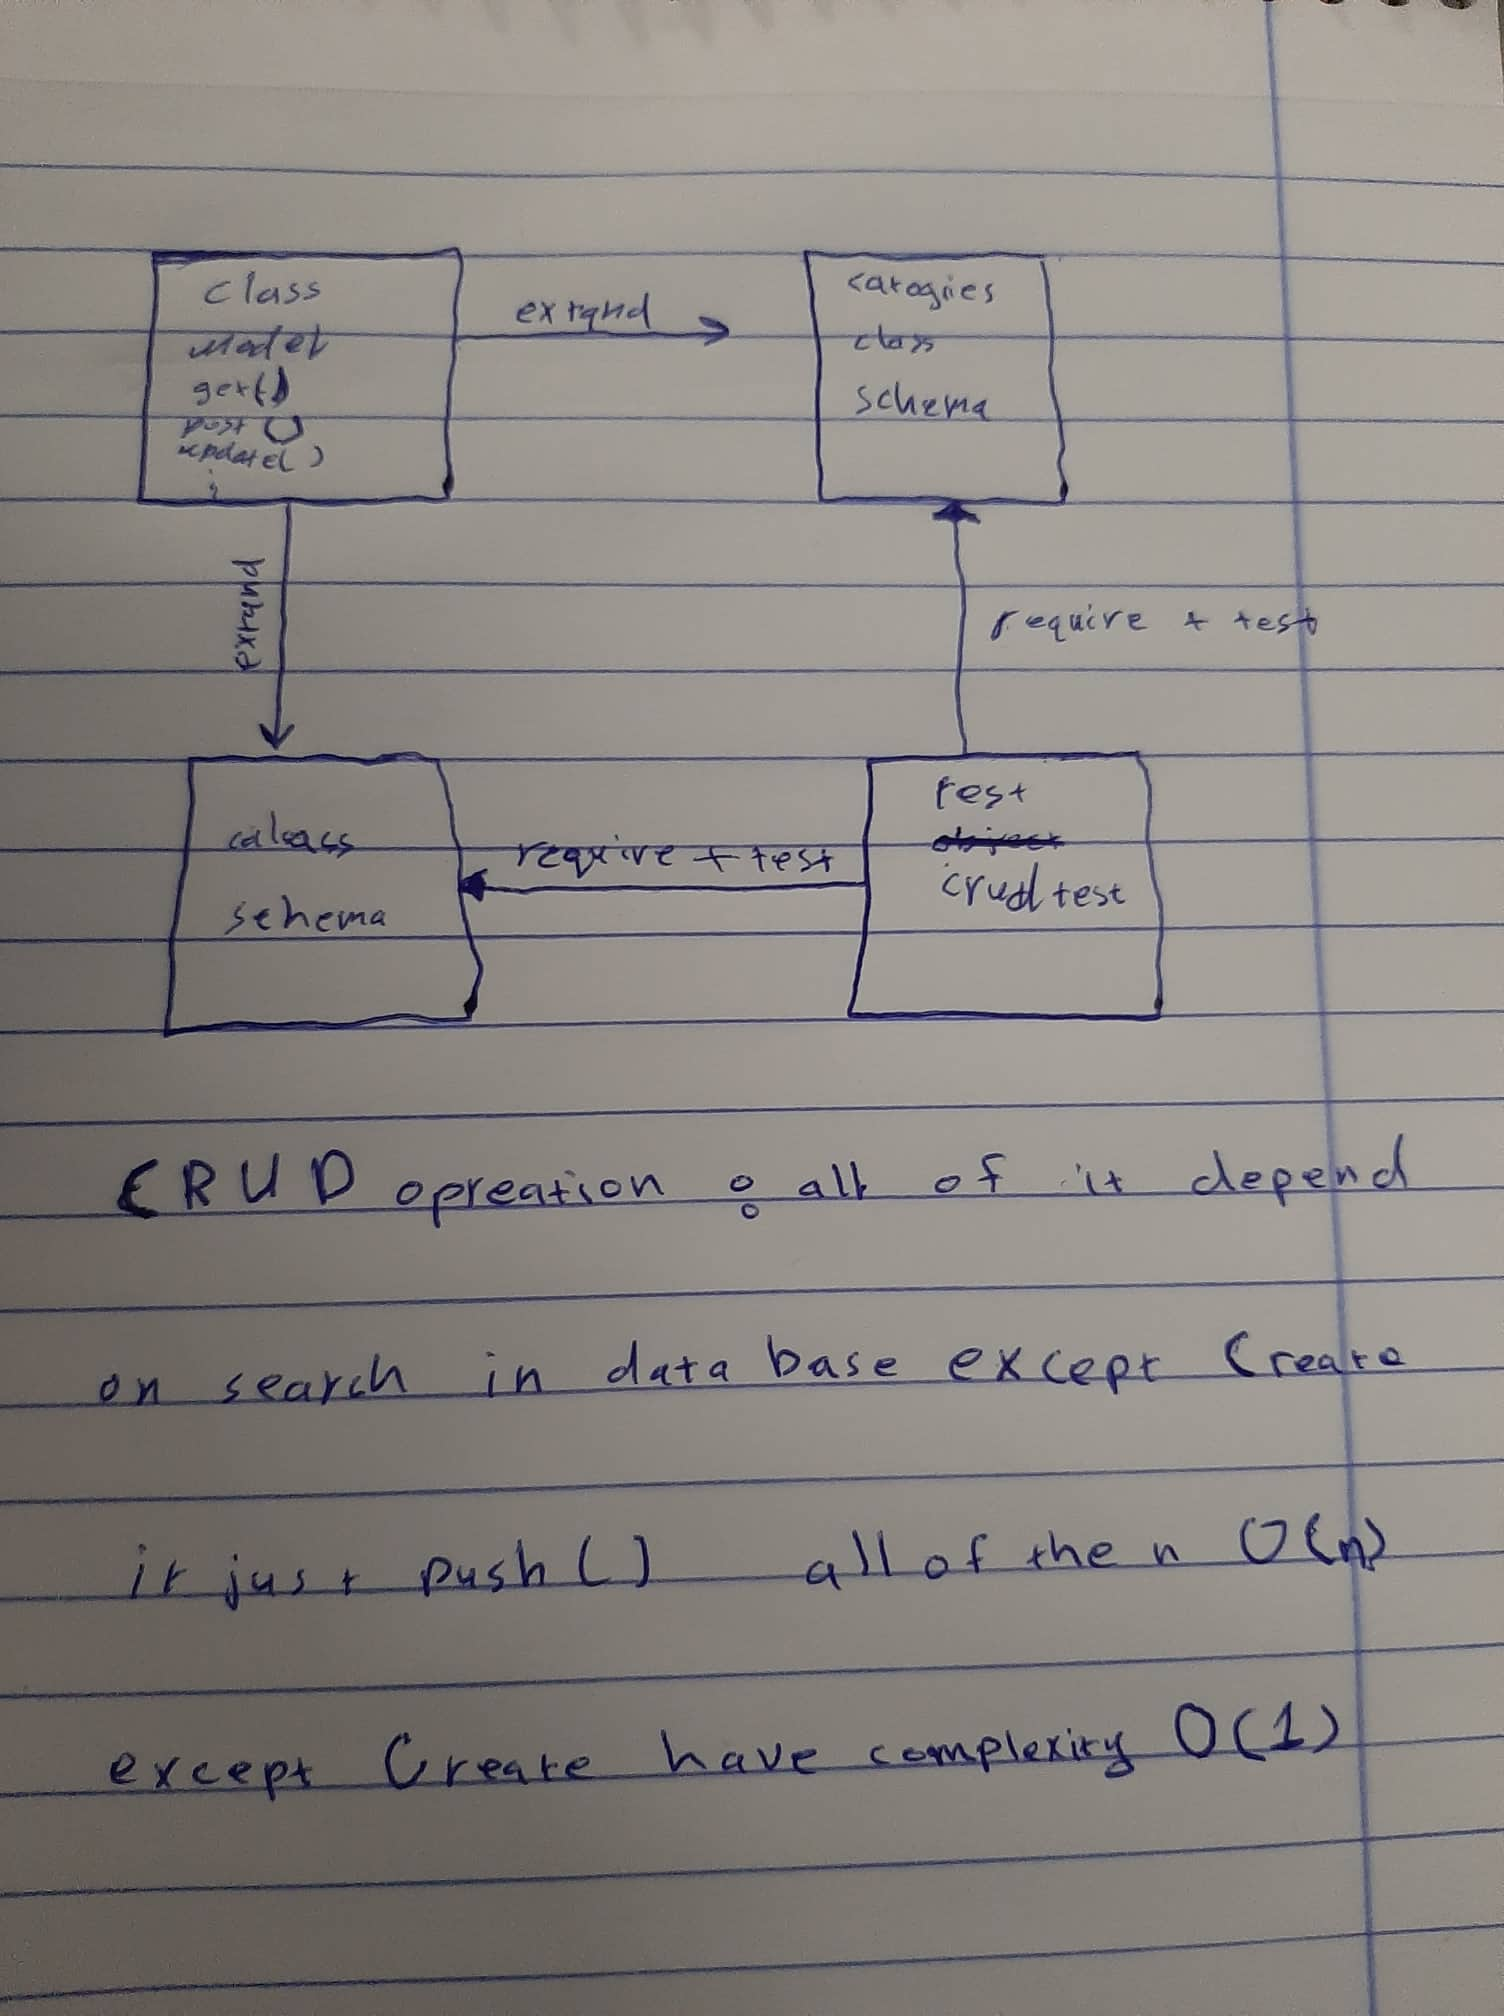 class
Model
get()
post()
update()
extand
catogries
class
schema
extand
require + test
calass
schema
require + test
test
object
crud test
CRUD opreation : all of it depend
on search in data base except Create
it just push() all of then O(n)
except Create have complexity O(1)